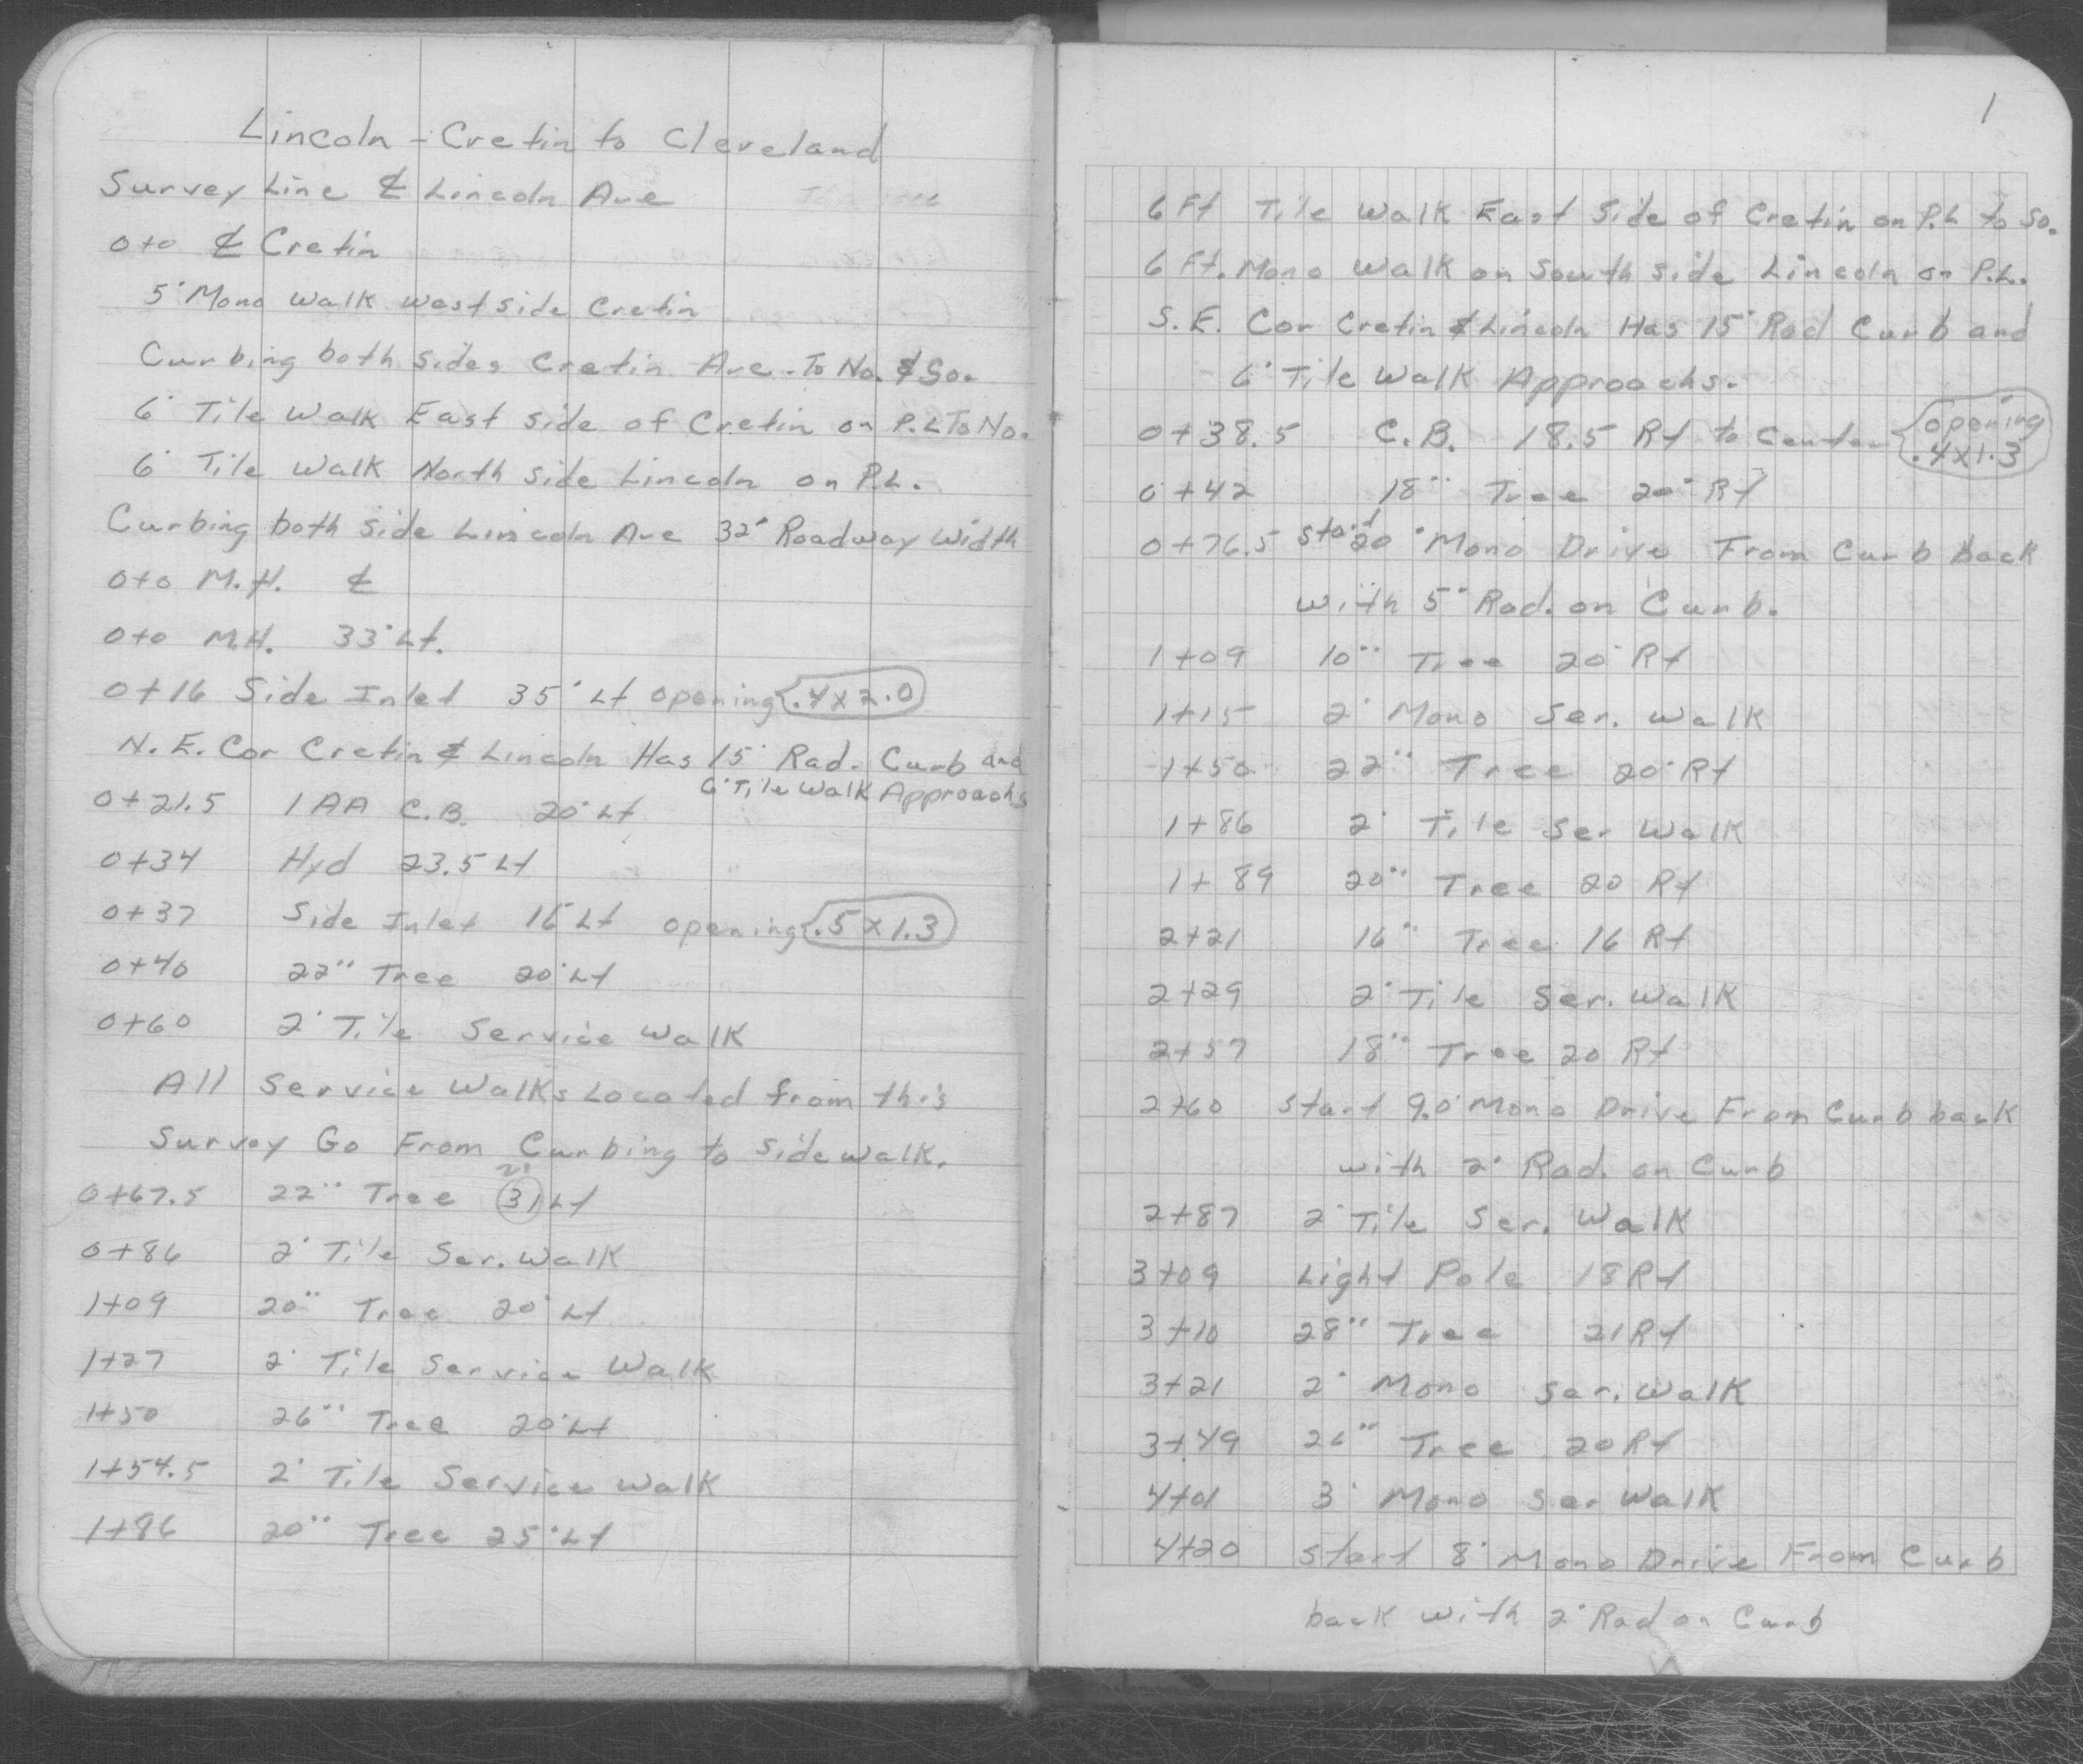 Lincoln - Cretin to Cleveland
Survey Line ℄ Lincoln Ave
0+0 ℄ Cretin
5' Mono Walk West Side Cretin
Curbing both Sides Cretin Ave. To No. & So.
6' Tile Walk East Side of Cretin on P.L To No.
6' Tile Walk North Side Lincoln on P.L.
Curbing both Side Lincoln Ave 32' Roadway Width
0+0 M.H. ℄
0+0 M.H. 33' Lt.
0+16 Side Inlet 35' Lt opening .4 x 2.0
N.E. Cor Cretin & Lincoln Has 15' Rad. Curb and
6' Tile Walk Approachs
0+21.5 1 AA C.B. 20' Lt
0+34 Hyd 23.5 Lt
0+37 Side Inlet 16 Lt opening .5 x 1.3
0+40 22" Tree 20' Lt
0+60 2' Tile Service Walk
All Service Walks Located from this
Survey Go From Curbing to Sidewalk.
21
0+67.5 22" Tree 31 Lt
0+86 2' Tile Ser. Walk
1+09 20" Tree 20' Lt
1+27 2' Tile Service Walk
1+50 26" Tree 20' Lt
1+54.5 2' Tile Service Walk
1+86 20" Tree 25' Lt
1
6 Ft Tile Walk East Side of Cretin on P.L to So.
6 Ft. Mono Walk on South Side Lincoln on P.L.
S.E. Cor Cretin & Lincoln Has 15' Rad Curb and
6' Tile Walk Approachs.
0+38.5 C.B. 18.5 Rt to Center opening .4x1.3
0+42 18" Tree 20' Rt
0+76.5 Start 20' Mono Drive From Curb back
with 5' Rad. on Curb.
1+09 10" Tree 20' Rt
1+15 2' Mono Ser. Walk
1+50 22" Tree 20' Rt
1+86 2' Tile Ser Walk
1+89 20" Tree 20 Rt
2+21 16" Tree 16 Rt
2+29 2' Tile Ser. Walk
2+57 18" Tree 20 Rt
2+60 Start 9.0' Mono Drive From Curb back
with 2' Rad. on Curb
2+87 2' Tile Ser. Walk
3+09 Light Pole 18 Rt
3+10 28" Tree 21 Rt
3+21 2' Mono Ser. Walk
3+49 26" Tree 20 Rt
4+01 3' Mono Ser Walk
4+20 Start 8' Mono Drive From Curb
back with 2' Rad on Curb